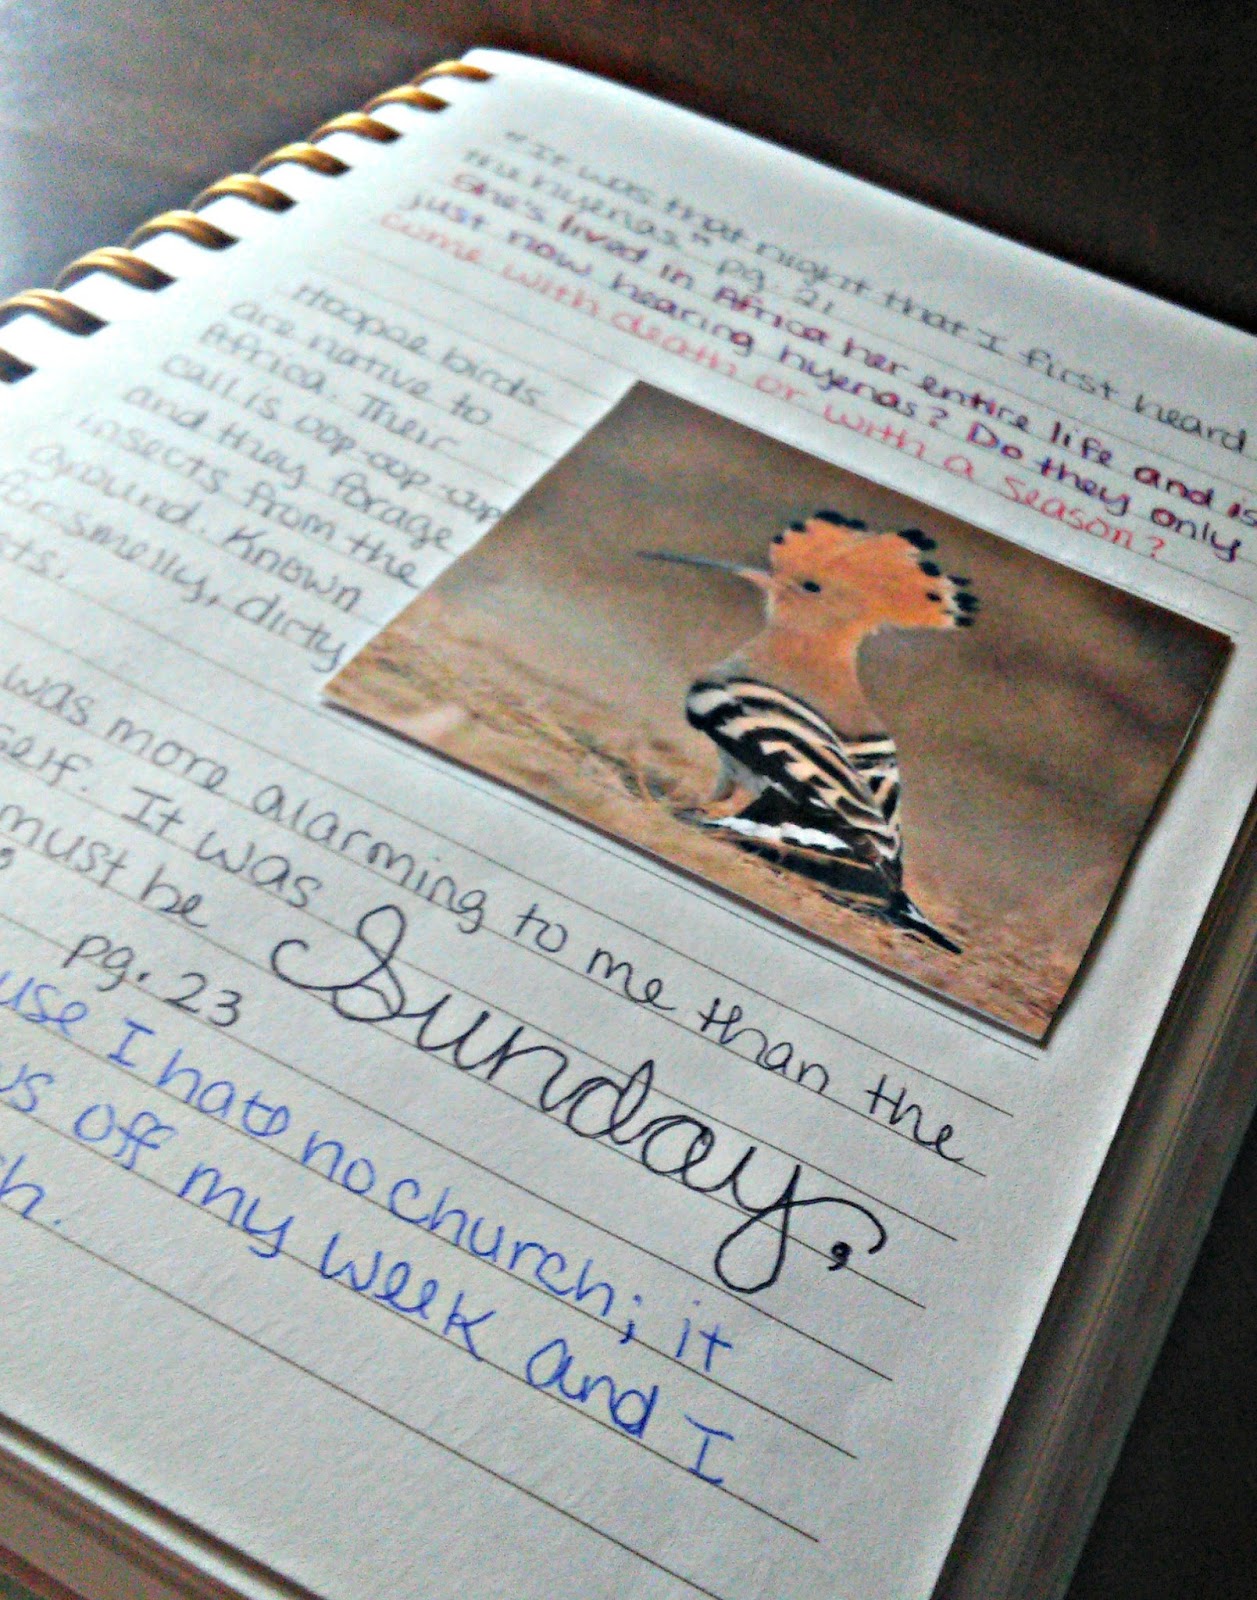 "It was that night that I first heard
the hyenas" pg. 21
She's lived in Africa her entire life and is
just now hearing hyenas? Do they only
come with death or with a season?
Hoopoe birds
are native to
Africa. Their
call is oop-oop-oop
and they forage
insects from the
ground. Known
for smelly, dirty
was more alarming to me than the
self. It was
must be Sunday,
pg. 23
use I hate no church; it
off my week and I